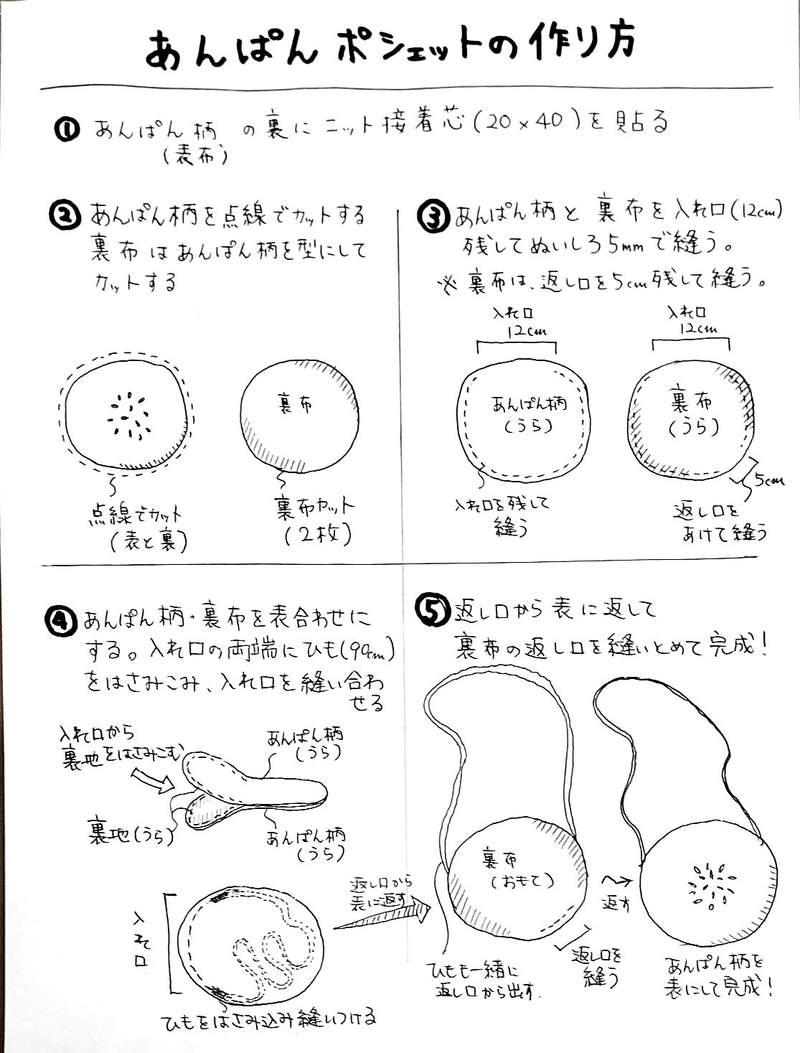 あんぱん ポシェットの作り方
① あんぱん柄 の裏に ニット接着芯(20×40)を貼る
(表布)
② あんぱん柄を点線でカットする
裏布 はあんぱん柄を型にして
カットする
裏布
点線でカット
(表と裏)
裏布カット
(2枚)
③ あんぱん柄と 裏布を入れ口(12cm)
残してぬいしろ5mmで縫う。
※ 裏布は、返し口を5cm残して縫う。
入れ口
12cm
入れ口
12cm
あんぱん柄
(うら)
裏布
(うら)
5cm
入れ口を残して
縫う
返し口を
あけて縫う
④ あんぱん柄・裏布を表合わせに
する。入れ口の両端にひも(90cm)
をはさみこみ、入れ口を縫い合わ
せる
入れ口から
裏地をはさみこむ
あんぱん柄
(うら)
裏地(うら)
あんぱん柄
(うら)
入れ口
返し口から
表に返す
ひもをはさみ込み縫いつける
⑤ 返し口から表に返して
裏布の返し口を縫いとめて完成!
裏布
(おもて)
返す
返し口を
縫う
ひもも一緒に
返し口から出す.
あんぱん柄を
表にして完成!